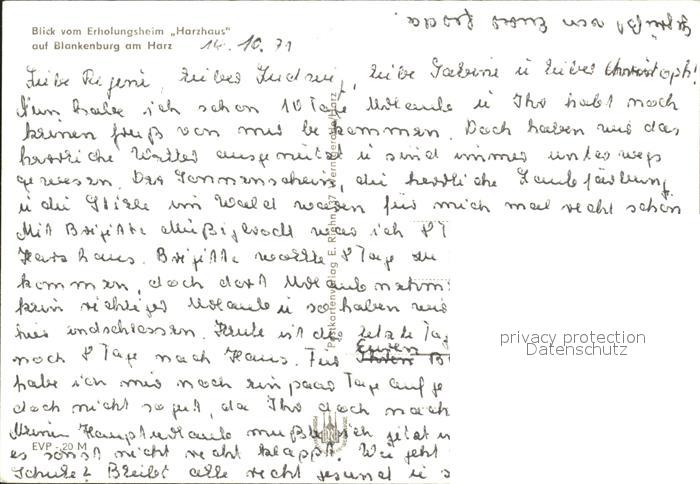 Blick vom Erholungsheim „Harzhaus"
auf Blankenburg am Harz
14. 10. 71
Liebe Regine, Lieber Ludwig, Liebe Sabine u Lieber Christoph!
Nun habe ich schon 10 Tage Urlaub u Ihr habt noch
keinen Gruß von mir bekommen. Doch haben wir das
herrliche Wetter ausgenützt u sind immer unterwegs
gewesen. Der Sonnenschein, die herrliche Laubfärbung
u die Stille im Wald waren für mich mal recht schön
Mit Brigitte war ich 8 T
Harzhaus. Brigitte wollte 8 Tage zu
kommen, doch dort Urlaub nehm
kein richtiger Urlaub u so haben wir
hier entschlossen. Heute ist die letzte Tag
noch 8 Tage nach Haus. Für Euren B
habe ich mir noch ein paar Tage aufge
doch nicht so gut, da Ihr doch nach
Meinen Haupturlaub mußte ich jetzt n
es sonst nicht recht klappt. Wie geht
Schule? Bleibt alle recht gesund u s
EVP -20 M
Postkartenverlag E. Riehn, 37 Wernigerode/Harz
privacy protection
Datenschutz